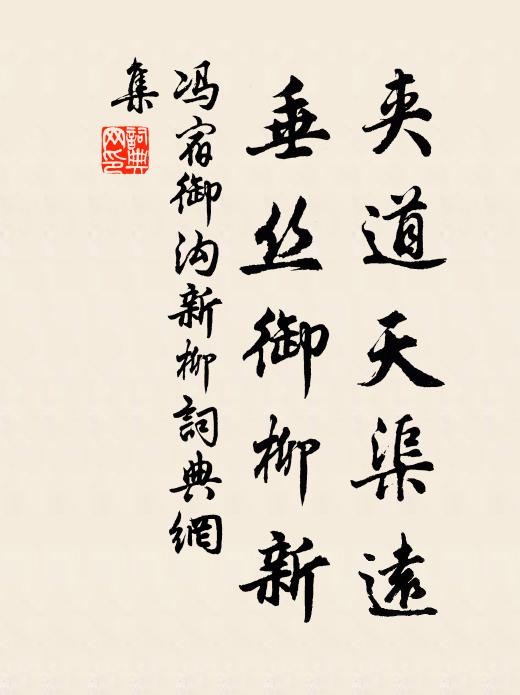 夹道天渠遠
垂丝御柳新
冯宿御沟新柳詞典網
集
詞典網印